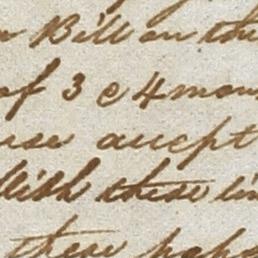 Bill on the
of 3 & 4 mon
use accept
With these lin
these